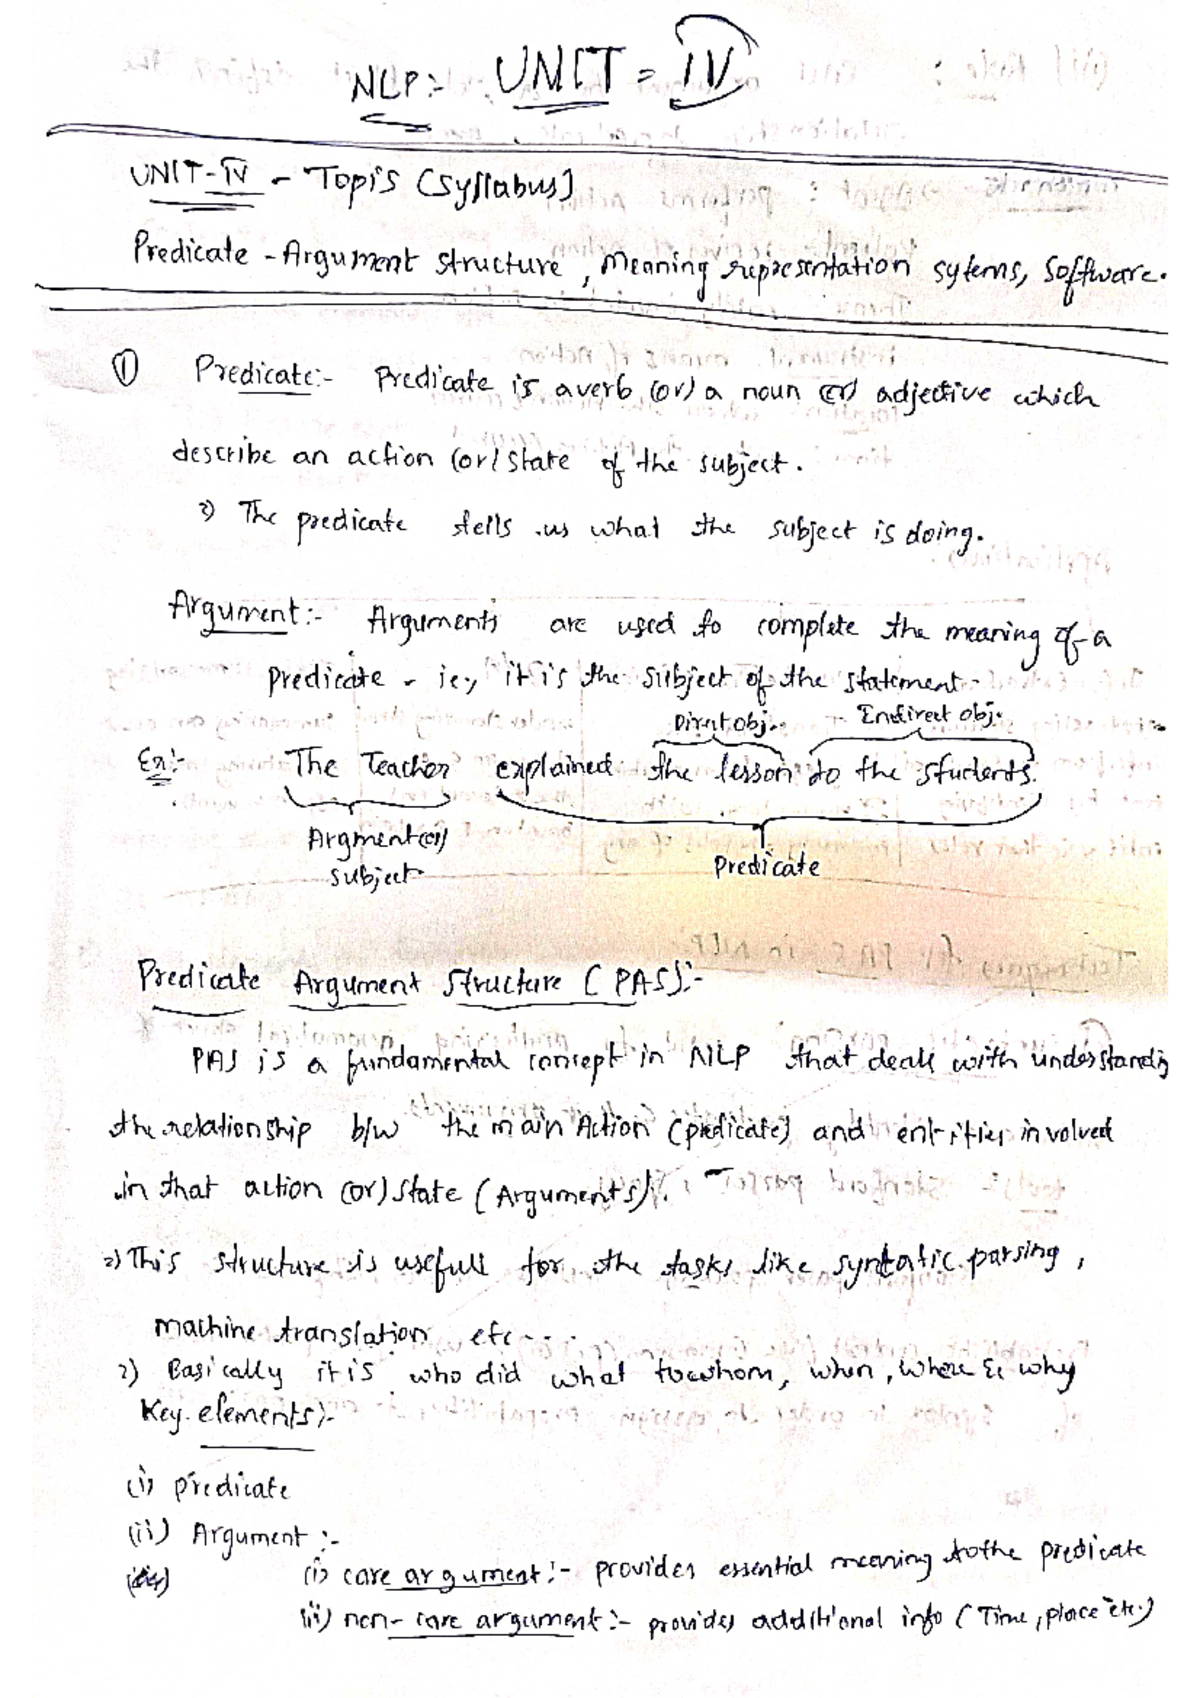 NLP:- UNIT = IV
UNIT-IV - Topis (Syllabus)
Predicate - Argument structure, Meaning representation sytems, Software.
① Predicate:- Predicate is a verb (or) a noun (or) adjective which
describe an action (or) state of the subject.
2) The predicate tells us what the subject is doing.
Argument:- Arguments are used to complete the meaning of a
predicate - ie, it is the subject of the statement.
Direct obj. Endirect obj.
Ex:- The Teacher explained the lesson to the students.
Argment(or) subject
Predicate
Predicate Argument Structure (PAS):-
PAS is a fundamental concept in NLP that deals with understanding
the relationship b/w the main Action (predicate) and entities involved
in that action (or) state (Arguments).
2) This structure is usefull for the tasks like syntatic parsing,
machine translation etc---
2) Basically it is who did what to whom, when, where & why
Key elements:-
(i) predicate
(ii) Argument :-
(i) care argument:- provides essential meaning to the predicate
(ii) non-care argument:- provides additional info (Time, place etc.)